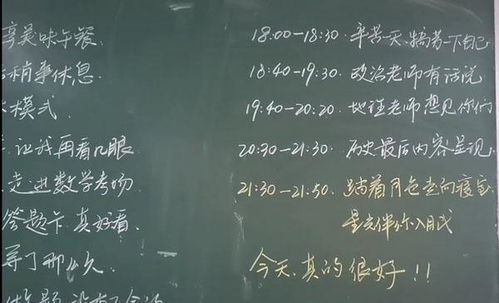 享美味午餐.
稍事休息.
模式.
让我再看几眼
走进数学考场.
答题卡.真好看.
等了那么久.
18:00-18:30.辛苦一天,犒劳一下自己
18:40-19:30.政治老师有话说
19:40-20:20.地理老师想见你们
20:30-21:30.历史最后内容呈现.
21:30-21:50.踏着月色走向寝室
星光伴你入眠
今天.真的很好!!